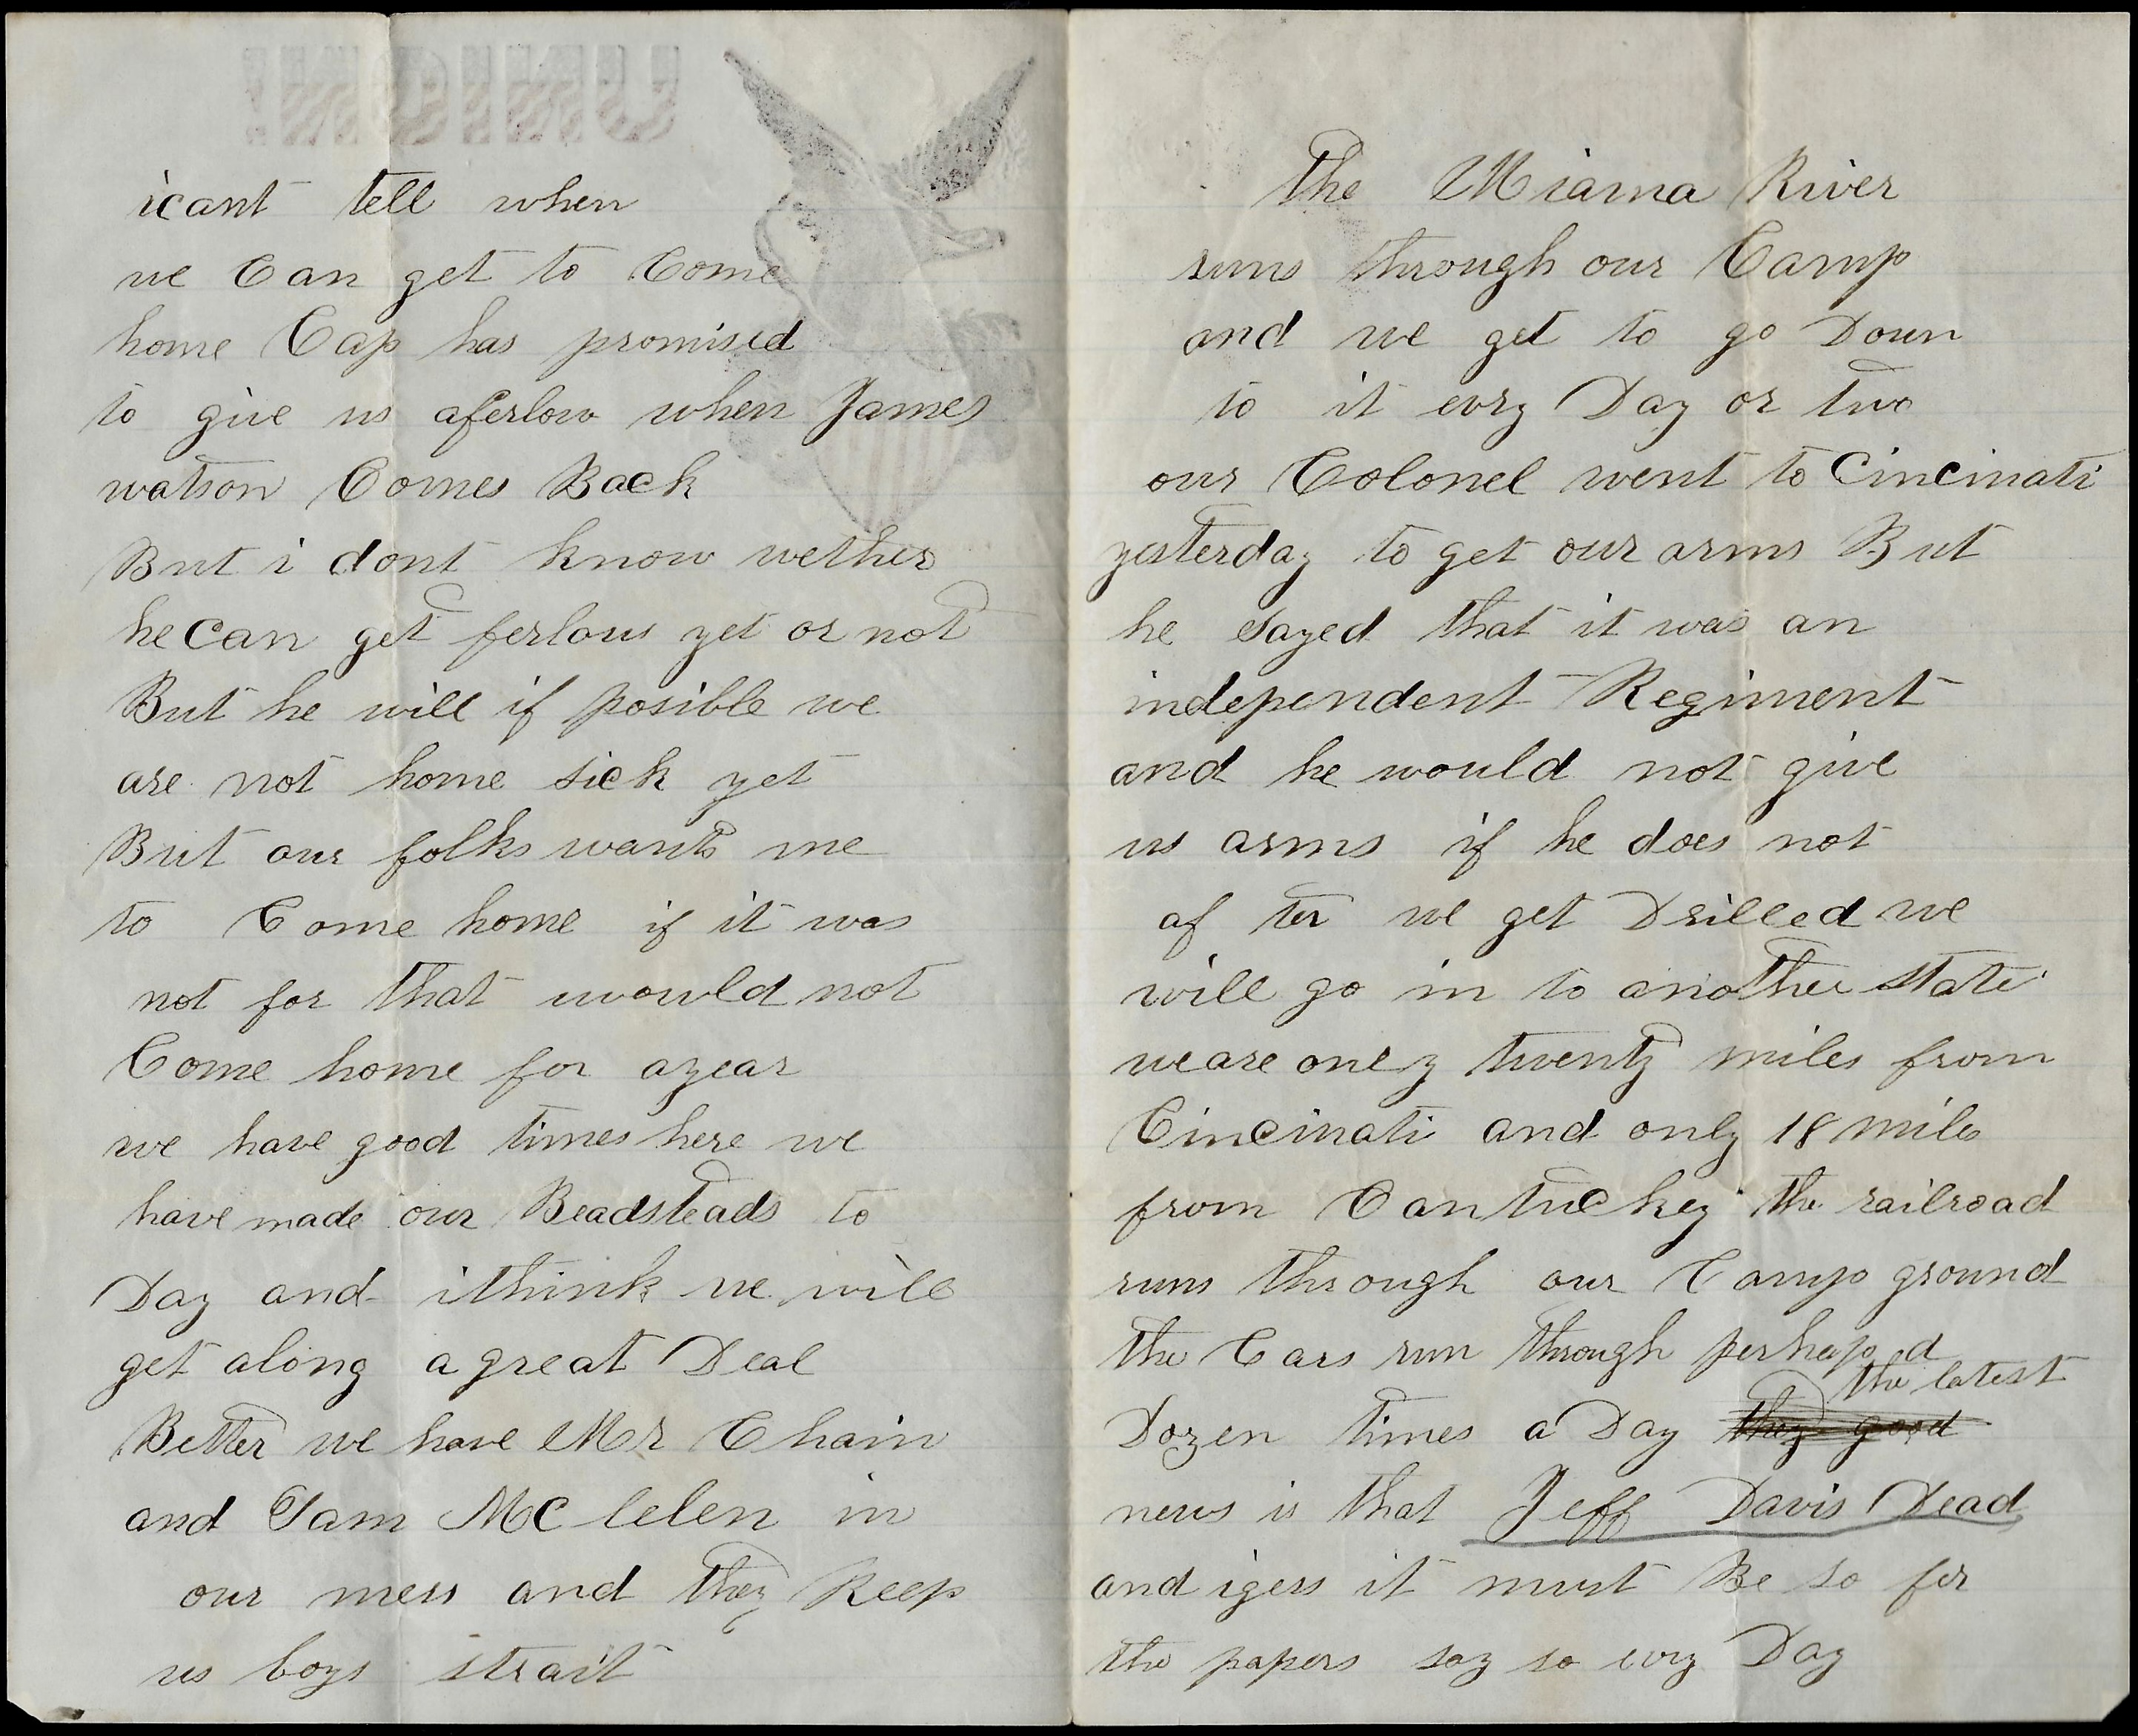 UNION!
icant tell when
we Can get to Come
home Cap has promised
to give us aferlow when James
watson Comes Back
But i dont know wether
he Can get ferlows yet or not
But he will if posible we
are not home sick yet
But our folks wants me
to Come home if it was
not for that uwould not
Come home for ayear
we have good times here we
have made our Beadsteads to
Day and ithink we will
get along a great Deal
Better we have Mr Chain
and Sam Mc lelen in
our mess and they Keep
us boys strait
The Miama River
runs through our Camp
and we get to go Down
to it evry Day or two
our Colonel went to Cincinati
yesterday to get our arms But
he sayed that it was an
independent Regiment
and he would not give
us arms if he does not
af ter we get Drilled we
will go in to another state
weare only twenty miles from
Cincinati and only 18 miles
from Cantuckey the railroad
runs through our Camp ground
the Cars run through perhaps d
the latest
Dozen times a Day they good
news is that Jeff Davis Dead
and igess it must Be so for
the papers say so evry Day